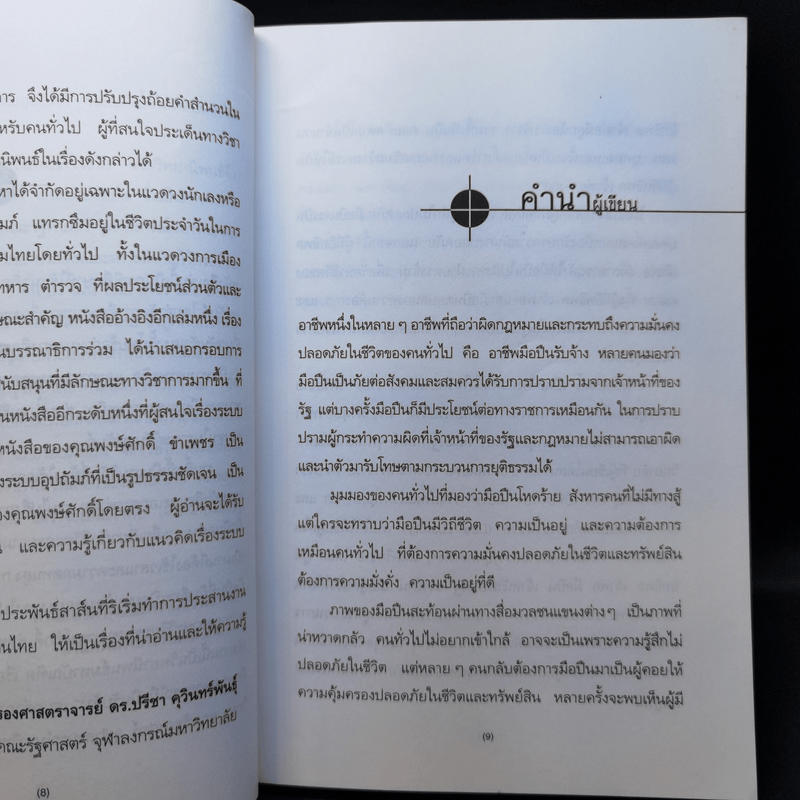 การ จึงได้มีการปรับปรุงถ้อยคำสำนวนใน
หรับคนทั่วไป ผู้ที่สนใจประเด็นทางวิชา
นิพนธ์ในเรื่องดังกล่าวได้
หาได้จำกัดอยู่เฉพาะในแวดวงนักเลงหรือ
มภ์ แทรกซึมอยู่ในชีวิตประจำวันในการ
มไทยโดยทั่วไป ทั้งในแวดวงการเมือง
ทหาร ตำรวจ ที่ผลประโยชน์ส่วนตัวและ
ษณะสำคัญ หนังสืออ้างอิงอีกเล่มหนึ่ง เรื่อง
นบรรณาธิการร่วม ได้นำเสนอกรอบการ
นับสนุนที่มีลักษณะทางวิชาการมากขึ้น ที่
นหนังสืออีกระดับหนึ่งที่ผู้สนใจเรื่องระบบ
หนังสือของคุณพงษ์ศักดิ์ ขำเพชร เป็น
งระบบอุปถัมภ์ที่เป็นรูปธรรมชัดเจน เป็น
องคุณพงษ์ศักดิ์โดยตรง ผู้อ่านจะได้รับ
และความรู้เกี่ยวกับแนวคิดเรื่องระบบ
ประพันธ์สาส์นที่ริเริ่มทำการประสานงาน
นไทย ให้เป็นเรื่องที่น่าอ่านและให้ความรู้
รองศาสตราจารย์ ดร.ปรีชา คุวินทร์พันธุ์
คณะรัฐศาสตร์ จุฬาลงกรณ์มหาวิทยาลัย
(8)
คำนำผู้เขียน
อาชีพหนึ่งในหลาย ๆ อาชีพที่ถือว่าผิดกฎหมายและกระทบถึงความมั่นคง
ปลอดภัยในชีวิตของคนทั่วไป คือ อาชีพมือปืนรับจ้าง หลายคนมองว่า
มือปืนเป็นภัยต่อสังคมและสมควรได้รับการปราบปรามจากเจ้าหน้าที่ของ
รัฐ แต่บางครั้งมือปืนก็มีประโยชน์ต่อทางราชการเหมือนกัน ในการปราบ
ปรามผู้กระทำความผิดที่เจ้าหน้าที่ของรัฐและกฎหมายไม่สามารถเอาผิด
และนำตัวมารับโทษตามกระบวนการยุติธรรมได้
มุมมองของคนทั่วไปที่มองว่ามือปืนโหดร้าย สังหารคนที่ไม่มีทางสู้
แต่ใครจะทราบว่ามือปืนมีวิถีชีวิต ความเป็นอยู่ และความต้องการ
เหมือนคนทั่วไป ที่ต้องการความมั่นคงปลอดภัยในชีวิตและทรัพย์สิน
ต้องการความมั่งคั่ง ความเป็นอยู่ที่ดี
ภาพของมือปืนสะท้อนผ่านทางสื่อมวลชนแขนงต่างๆ เป็นภาพที่
น่าหวาดกลัว คนทั่วไปไม่อยากเข้าใกล้ อาจจะเป็นเพราะความรู้สึกไม่
ปลอดภัยในชีวิต แต่หลาย ๆ คนกลับต้องการมือปืนมาเป็นผู้คอยให้
ความคุ้มครองปลอดภัยในชีวิตและทรัพย์สิน หลายครั้งจะพบเห็นผู้มี
(9)